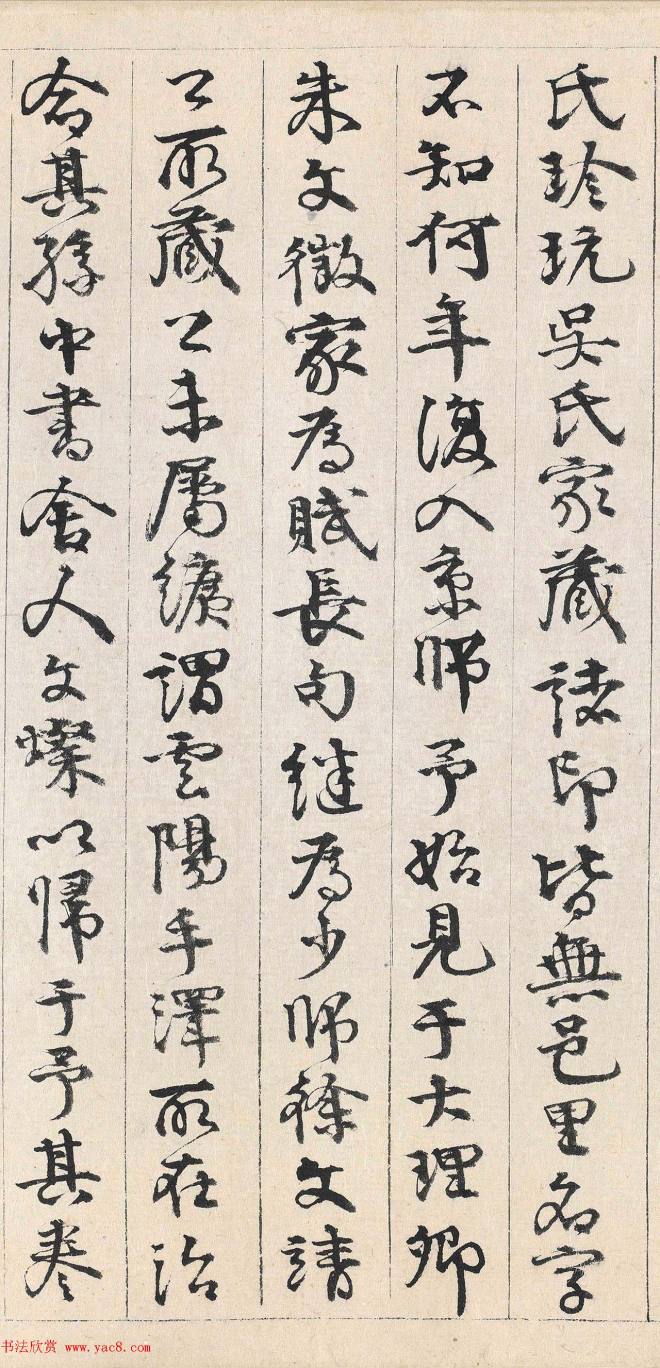 氏珍玩吳氏家藏諸印皆無邑里名字
不知何年復入京師予始見于大理卿
朱文徵家為賦長句継為少師徐文靖
公所藏公未屬纊謂雲陽手澤所在治
命其孫中書舍人文燦以歸于予其卷
书法欣赏 www.yac8.com